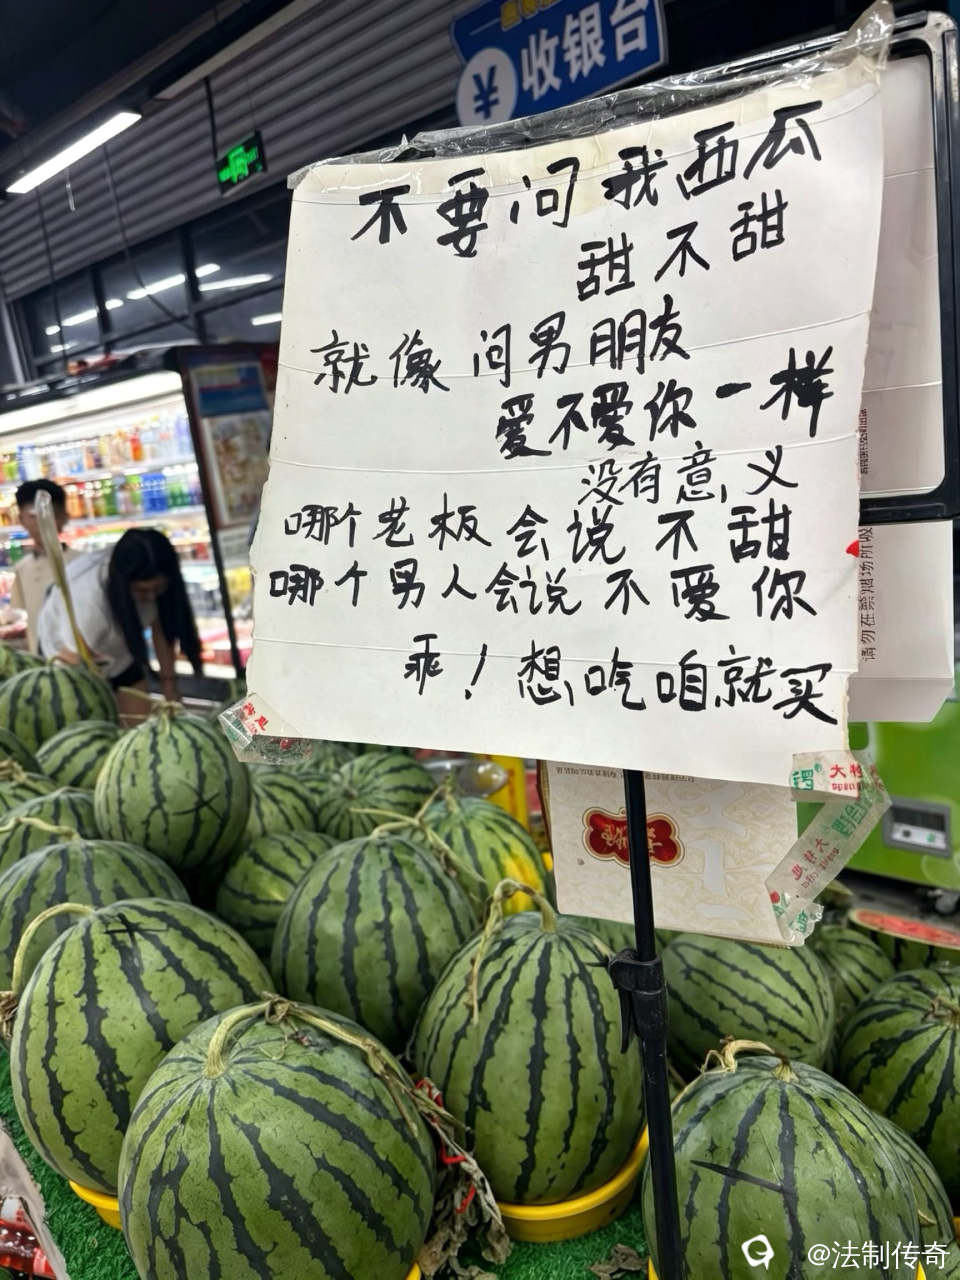 收银台
不要问我西瓜
甜不甜
就像问男朋友
爱不爱你一样
没有意义
哪个老板会说不甜
哪个男人会说不爱你
乖！想吃咱就买
请勿在禁烟场所吸
@法制传奇